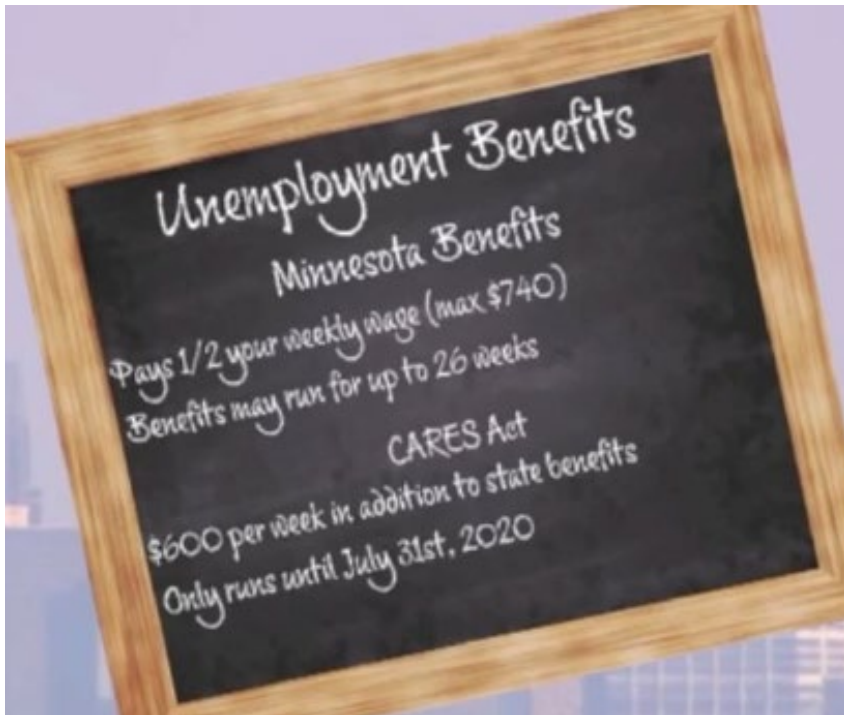 Unemployment Benefits
Minnesota Benefits
Pays 1/2 your weekly wage (max $740)
Benefits may run for up to 26 weeks
CARES Act
$600 per week in addition to state benefits
Only runs until July 31st, 2020